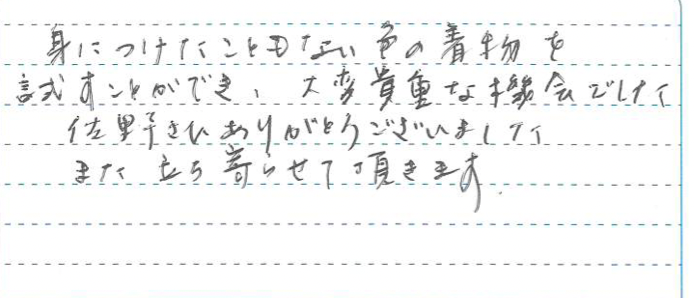 身につけたこともない色の着物を
試すことができ、大変貴重な機会でした
佐野さんありがとうございました
また立ち寄らせて頂きます.